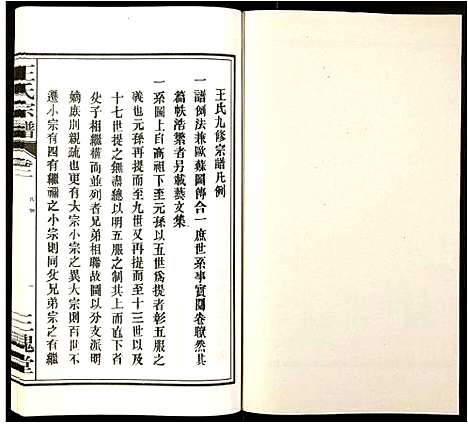 王氏九修宗譜凡例
一譜例法兼歐蘇圖傳合一庶世系事實開卷瞭然其
篇帙浩繁者另載藝文集
一系圖上自高祖下至元孫以五世爲提者彰五服之
義也元孫再提而至九世又再提而至十三世以及
十七世提之無盡總以明五服之制其上而直下者
父子相繼橫而並列者兄弟相聯故圖以分支派明
嫡庶別親疏也更有大宗小宗之異大宗則百世不
遷小宗有四有繼禰之小宗則同父兄弟宗之有繼
王氏宗譜
卷
凡例
一
三槐堂